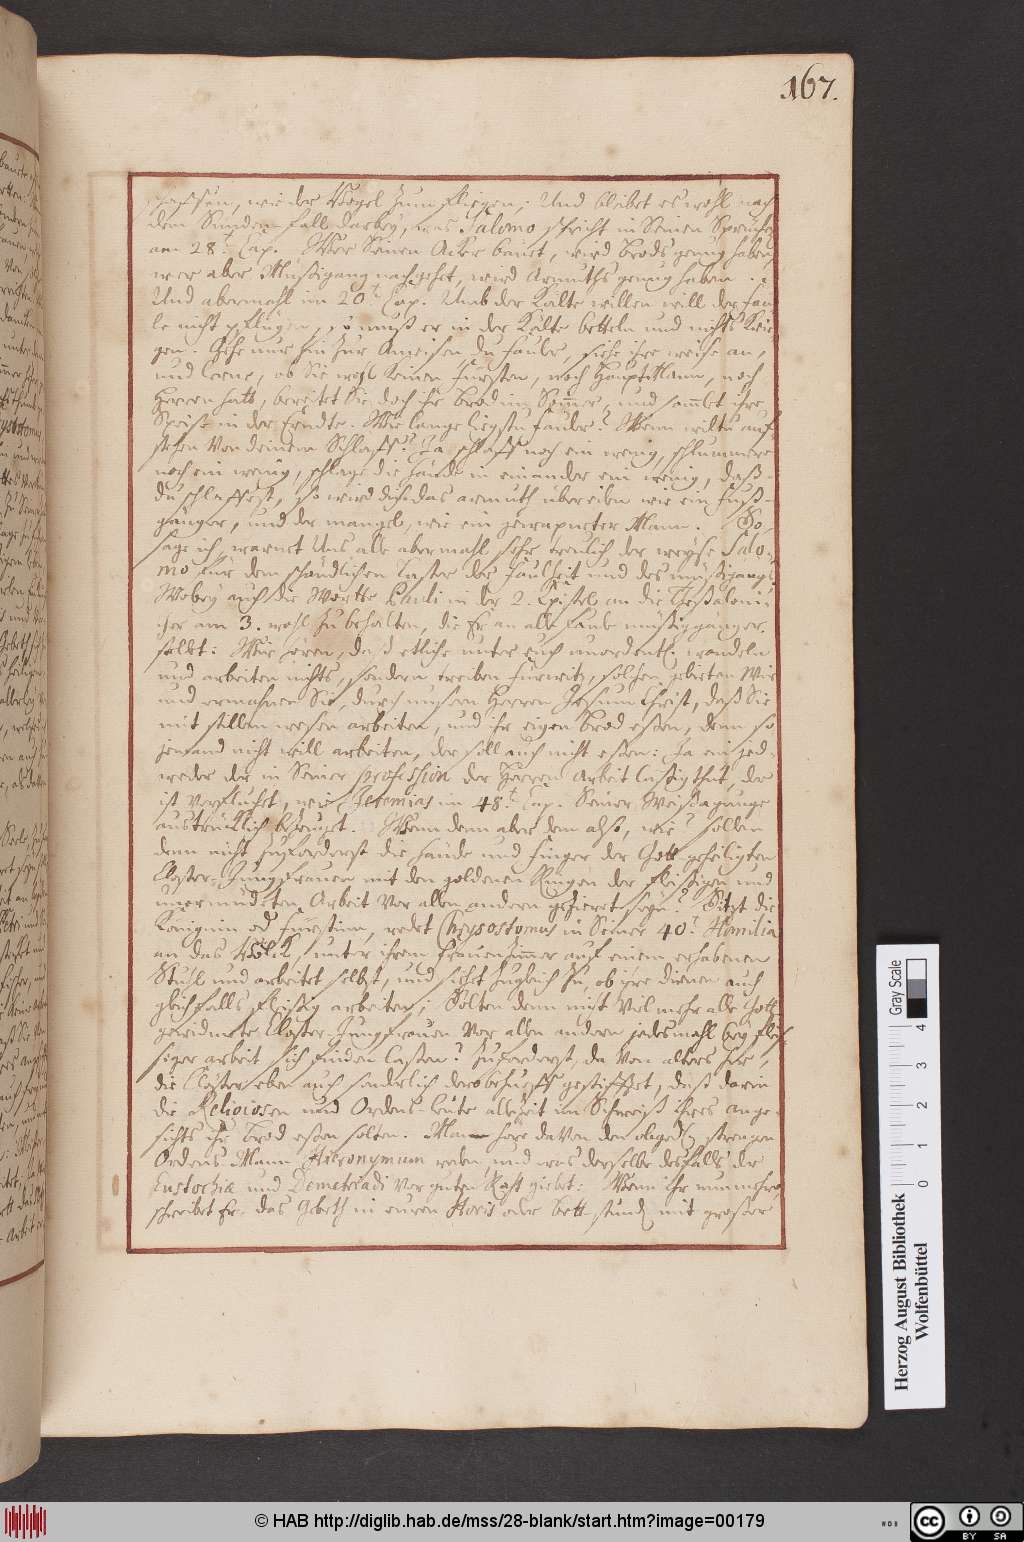 167.
schaffen, wie der Vogel zum fliegen; Und bleibet es wohl nach
dem Sünden-fall darbey, was Salomo spricht in Seinen Sprüchen
am 28. Cap. Wer Seinen Acker bauet, wird brods genug haben,
wer aber Müßigang nachgehet, wird Armuths genug haben.
Und abermahl im 20.t Cap. Umb der Kälte willen will der fau-
le nicht pflügen, so muß er in der Erndte betteln und nichts krie-
gen. Gehe nur hin zur Ameisen du fauler, siehe ihre weise an,
und lerne, ob Sie wohl keinen fürsten, noch Hauptmann, noch
Herren hatt, bereitet Sie doch ihr Brod im Sommer, und samlet ihre
Speise in der Erndte. Wie lange liegstu fauler? Wenn wiltu auf-
stehen von deinem Schlaff? Ja schlaff noch ein wenig, schlummere
noch ein wenig, schlage die hände in einander ein wenig, daß
du schlaffest, so wird dich das armuth übereilen wie ein fuß-
gänger, und der mangel, wie ein gewapneter Mann. So
sage ich, warnet Uns alle abermahl sehr treulich der weyse Salo-
mo für dem schändlichen laster der faulheit und des müßigangs.
Wobey auch die Wortte Pauli in der 2. Epistel an die Thessaloni-
cher am 3. wohl zu behalten, die Er an alle faule müßiggänger
stelt: Wir hören, daß etliche unter euch unordentl. wandeln
und arbeiten nichts, sondern treiben fürwitz, solchen gebieten Wir
und ermahnen Sie, durch unsern Herren Jesum Christ, daß Sie
mit stillem wesen arbeiten, und ihr eigen brod eßen, denn so
jemand nicht will arbeiten, der soll auch nicht eßen: Ja ein jed-
weder der in Seiner profession der Herren Arbeit laßig thut, der
ist verfluchet, wie Jeremias im 48.t Cap. Seiner Weißagunge
austrücklich bezeuget. Wenn denn aber dem also, wie? sollen
denn nicht zuforderst die hände und finger der Gott-geheiligten
Closter-Jungfrauen mit den goldenen Ringen der fleißigen und
unermüdeten Arbeit vor allen andern gezieret seyn? Sitzt die
Königinn od fürstinn, redet Chrysostomus in Seiner 40.t Homilia
an das Volck unter ihrem frauenzimmer auf einem erhabenen
Stuhl und arbeitet selbst, und siehet zugleich zu, ob ihre dienen auch
gleichfalls fleißig arbeiten; Solten denn nicht viel mehr alle Gott-
gewidmete Closter-Jungfrauen vor allen andern jedesmahl bey flei-
ßiger arbeit sich finden laßen? Zuforderst, da von alters her,
die Clöster eben auch sonderlich dero behueff gestifftet, daß darin
die Religiosen und Ordens-leute allezeit im Schweiß ihres ange-
sichts ihr brod eßen solten. Man höre davon den obged. strengen
Ordens-Mann Hieronymum reden, und was derselbe desfalls der
Eustochia und Demetriadi vor guten Raht giebet: Wenn ihr nunmehro,
schreibet Er, das Gebeth in euren Horis oder bett-stund. mit großer
Herzog August Bibliothek
Wolfenbüttel
Gray Scale
0 1 2 3 4
© HAB http://diglib.hab.de/mss/28-blank/start.htm?image=00179
WDB
CC BY SA